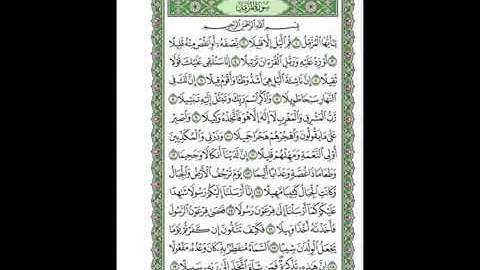 سورة المزمل
بسم الله الرحمن الرحيم
يَا أَيُّهَا الْمُزَّمِّلُ ۝١ قُمِ اللَّيْلَ إِلَّا قَلِيلًا ۝٢ نِّصْفَهُ أَوِ انقُصْ مِنْهُ قَلِيلًا
۝٣ أَوْ زِدْ عَلَيْهِ وَرَتِّلِ الْقُرْآنَ تَرْتِيلًا ۝٤ إِنَّا سَنُلْقِي عَلَيْكَ قَوْلًا
ثَقِيلًا ۝٥ إِنَّ نَاشِئَةَ اللَّيْلِ هِيَ أَشَدُّ وَطْئًا وَأَقْوَمُ قِيلًا ۝٦ إِنَّ لَكَ فِي
النَّهَارِ سَبْحًا طَوِيلًا ۝٧ وَاذْكُرِ اسْمَ رَبِّكَ وَتَبَتَّلْ إِلَيْهِ تَبْتِيلًا ۝٨
رَّبُّ الْمَشْرِقِ وَالْمَغْرِبِ لَا إِلَٰهَ إِلَّا هُوَ فَاتَّخِذْهُ وَكِيلًا ۝٩ وَاصْبِرْ
عَلَىٰ مَا يَقُولُونَ وَاهْجُرْهُمْ هَجْرًا جَمِيلًا ۝١٠ وَذَرْنِي وَالْمُكَذِّبِينَ
أُولِي النَّعْمَةِ وَمَهِّلْهُمْ قَلِيلًا ۝١١ إِنَّ لَدَيْنَا أَنكَالًا وَجَحِيمًا ۝١٢
وَطَعَامًا ذَا غُصَّةٍ وَعَذَابًا أَلِيمًا ۝١٣ يَوْمَ تَرْجُفُ الْأَرْضُ وَالْجِبَالُ
وَكَانَتِ الْجِبَالُ كَثِيبًا مَّهِيلًا ۝١٤ إِنَّا أَرْسَلْنَا إِلَيْكُمْ رَسُولًا شَاهِدًا
عَلَيْكُمْ كَمَا أَرْسَلْنَا إِلَىٰ فِرْعَوْنَ رَسُولًا ۝١٥ فَعَصَىٰ فِرْعَوْنُ الرَّسُولَ
فَأَخَذْنَاهُ أَخْذًا وَبِيلًا ۝١٦ فَكَيْفَ تَتَّقُونَ إِن كَفَرْتُمْ يَوْمًا
يَجْعَلُ الْوِلْدَانَ شِيبًا ۝١٧ السَّمَاءُ مُنفَطِرٌ بِهِ كَانَ وَعْدُهُ مَفْعُولًا
۝١٨ إِنَّ هَٰذِهِ تَذْكِرَةٌ فَمَن شَاءَ اتَّخَذَ إِلَىٰ رَبِّهِ سَبِيلًا ۝١٩